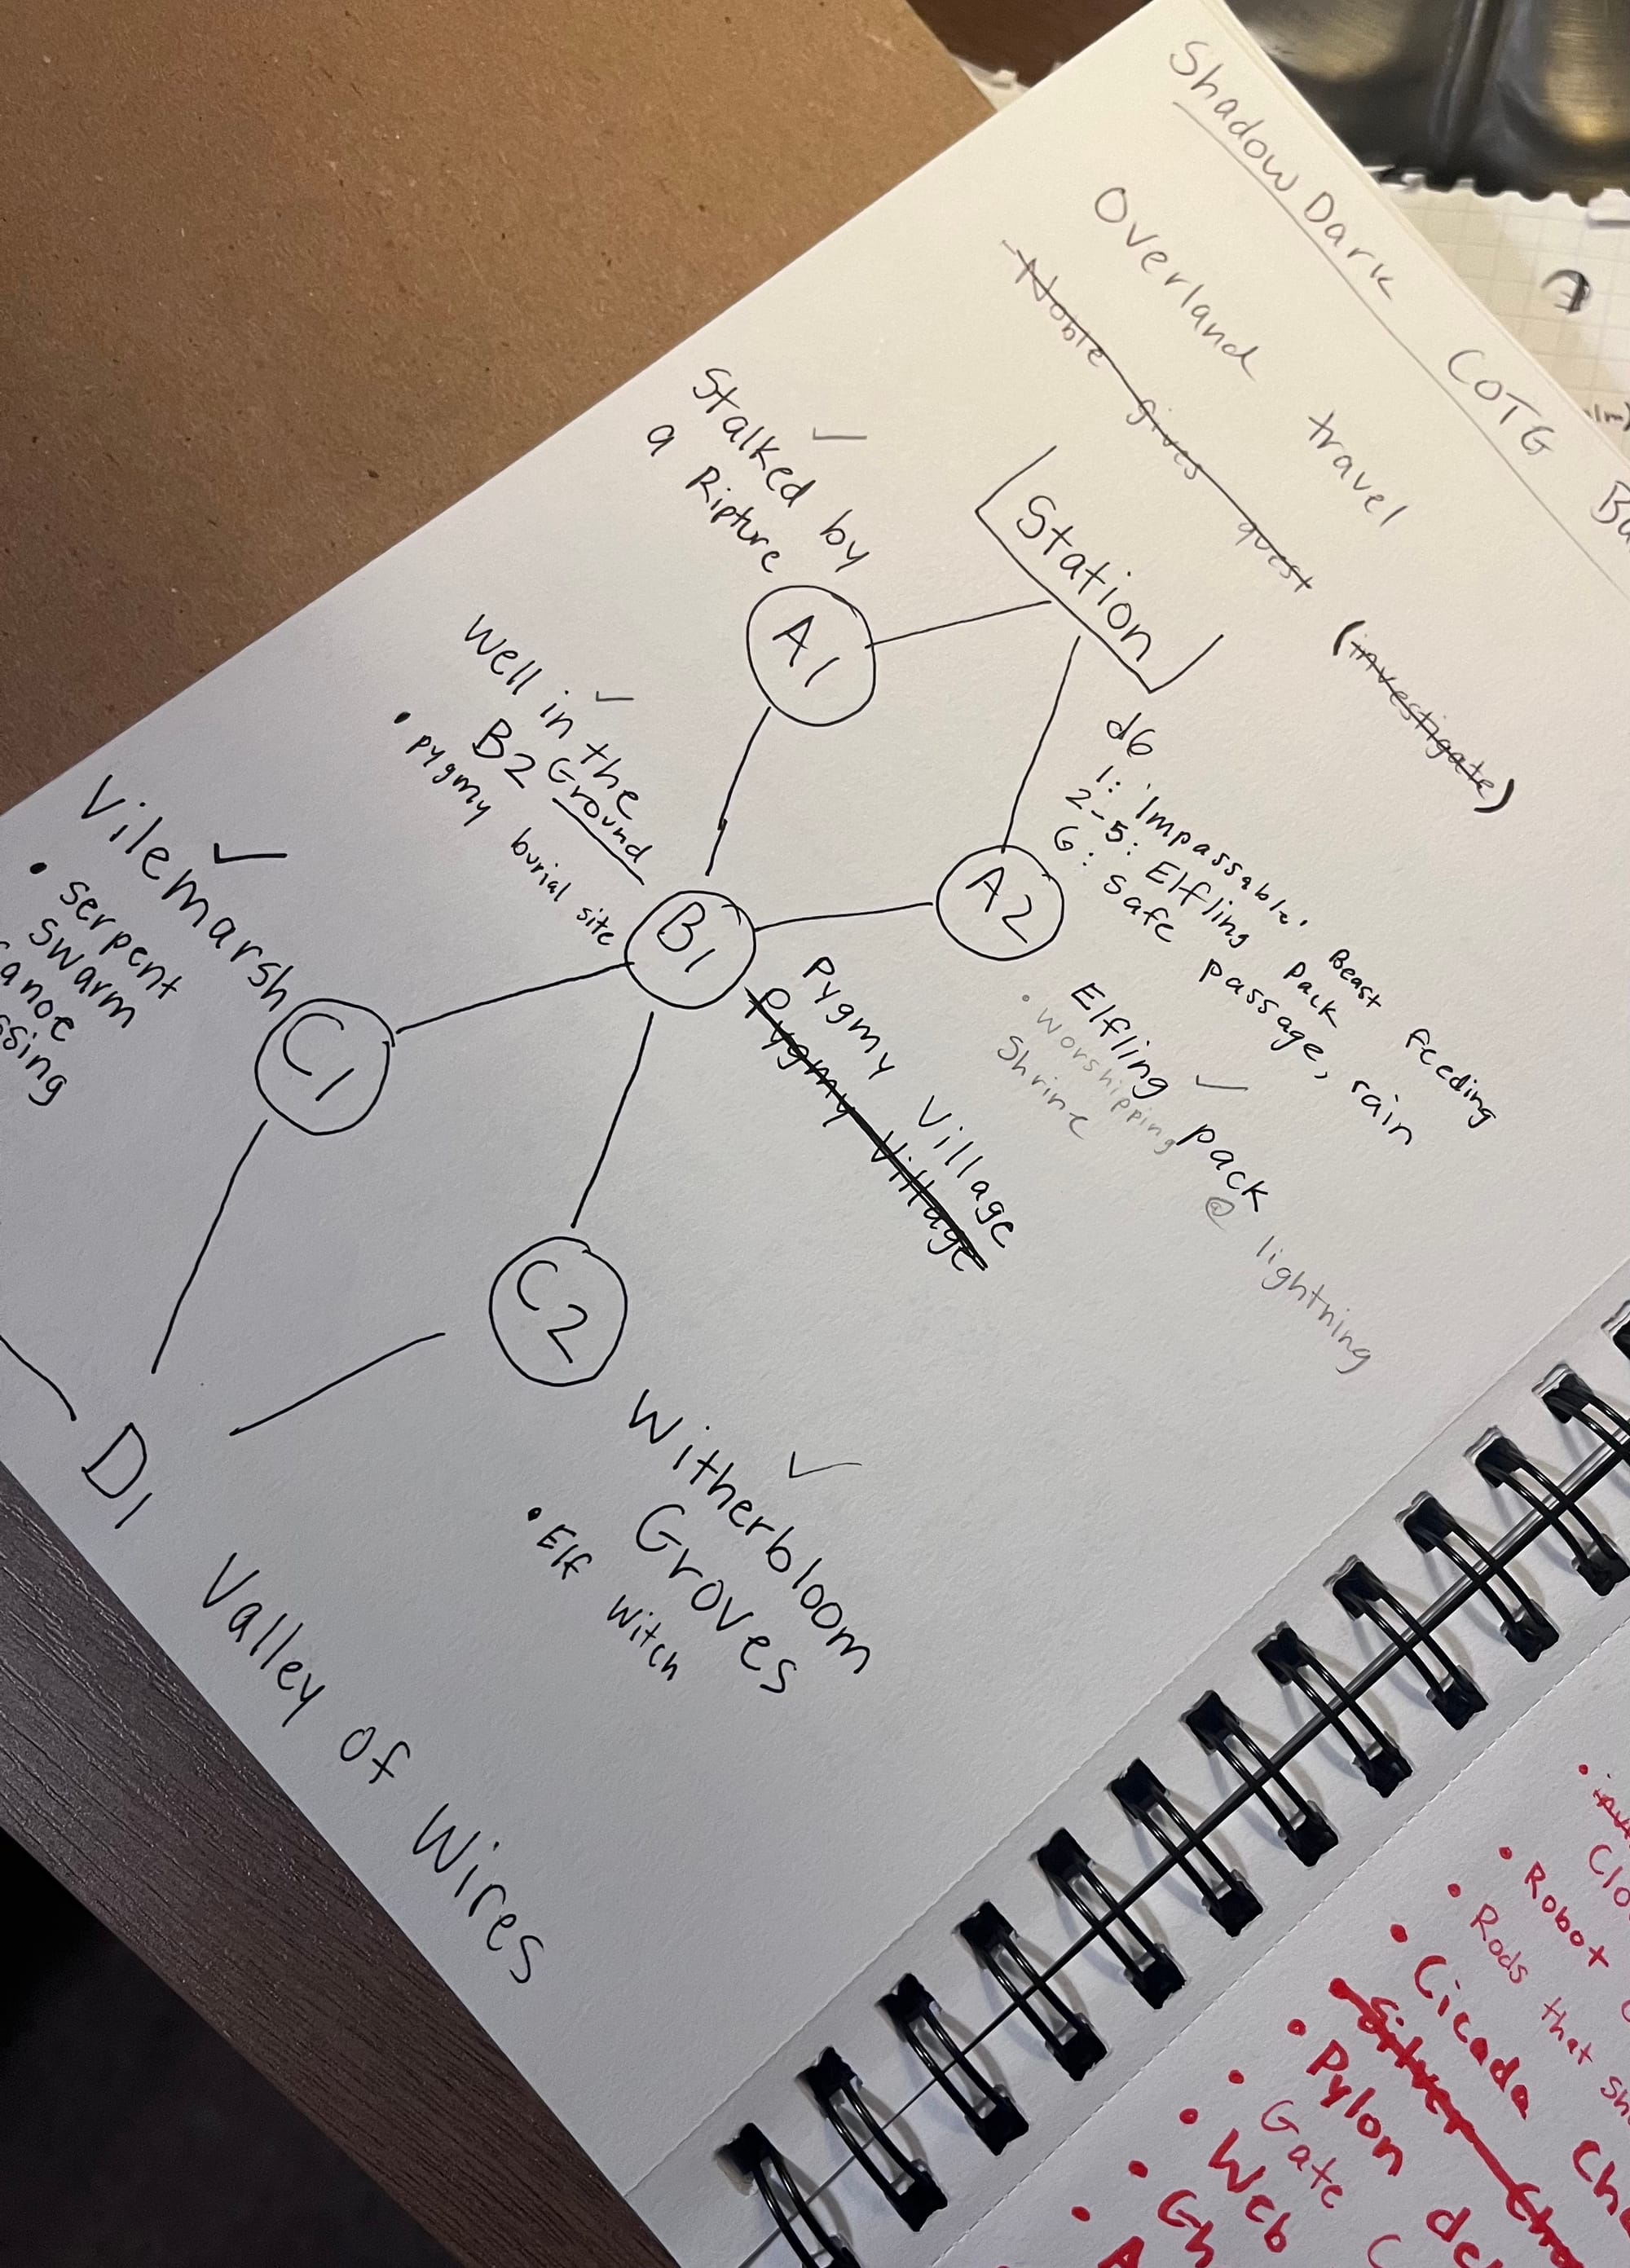 ShadowDark COTG
Overland travel
Noble gives quest (investigate)
Station
Stalked by
a Ripture
A1
d6
1: 'Impassable' Beast feeding
2-5: Elfling pack
6: safe passage, rain
A2
Elfling pack @ lightning
• Worshipping
Shrine
Well in the
B2 Ground
• pygmy burial site
B1
Pygmy Village
Pygmy Village
Vilemarsh
• serpent
swarm
C1
C2
Witherbloom
Groves
• Elf Witch
D1
Valley of Wires
7
• Robot
• Rods that
• Cicada
• Pylon
• Gate
• Web